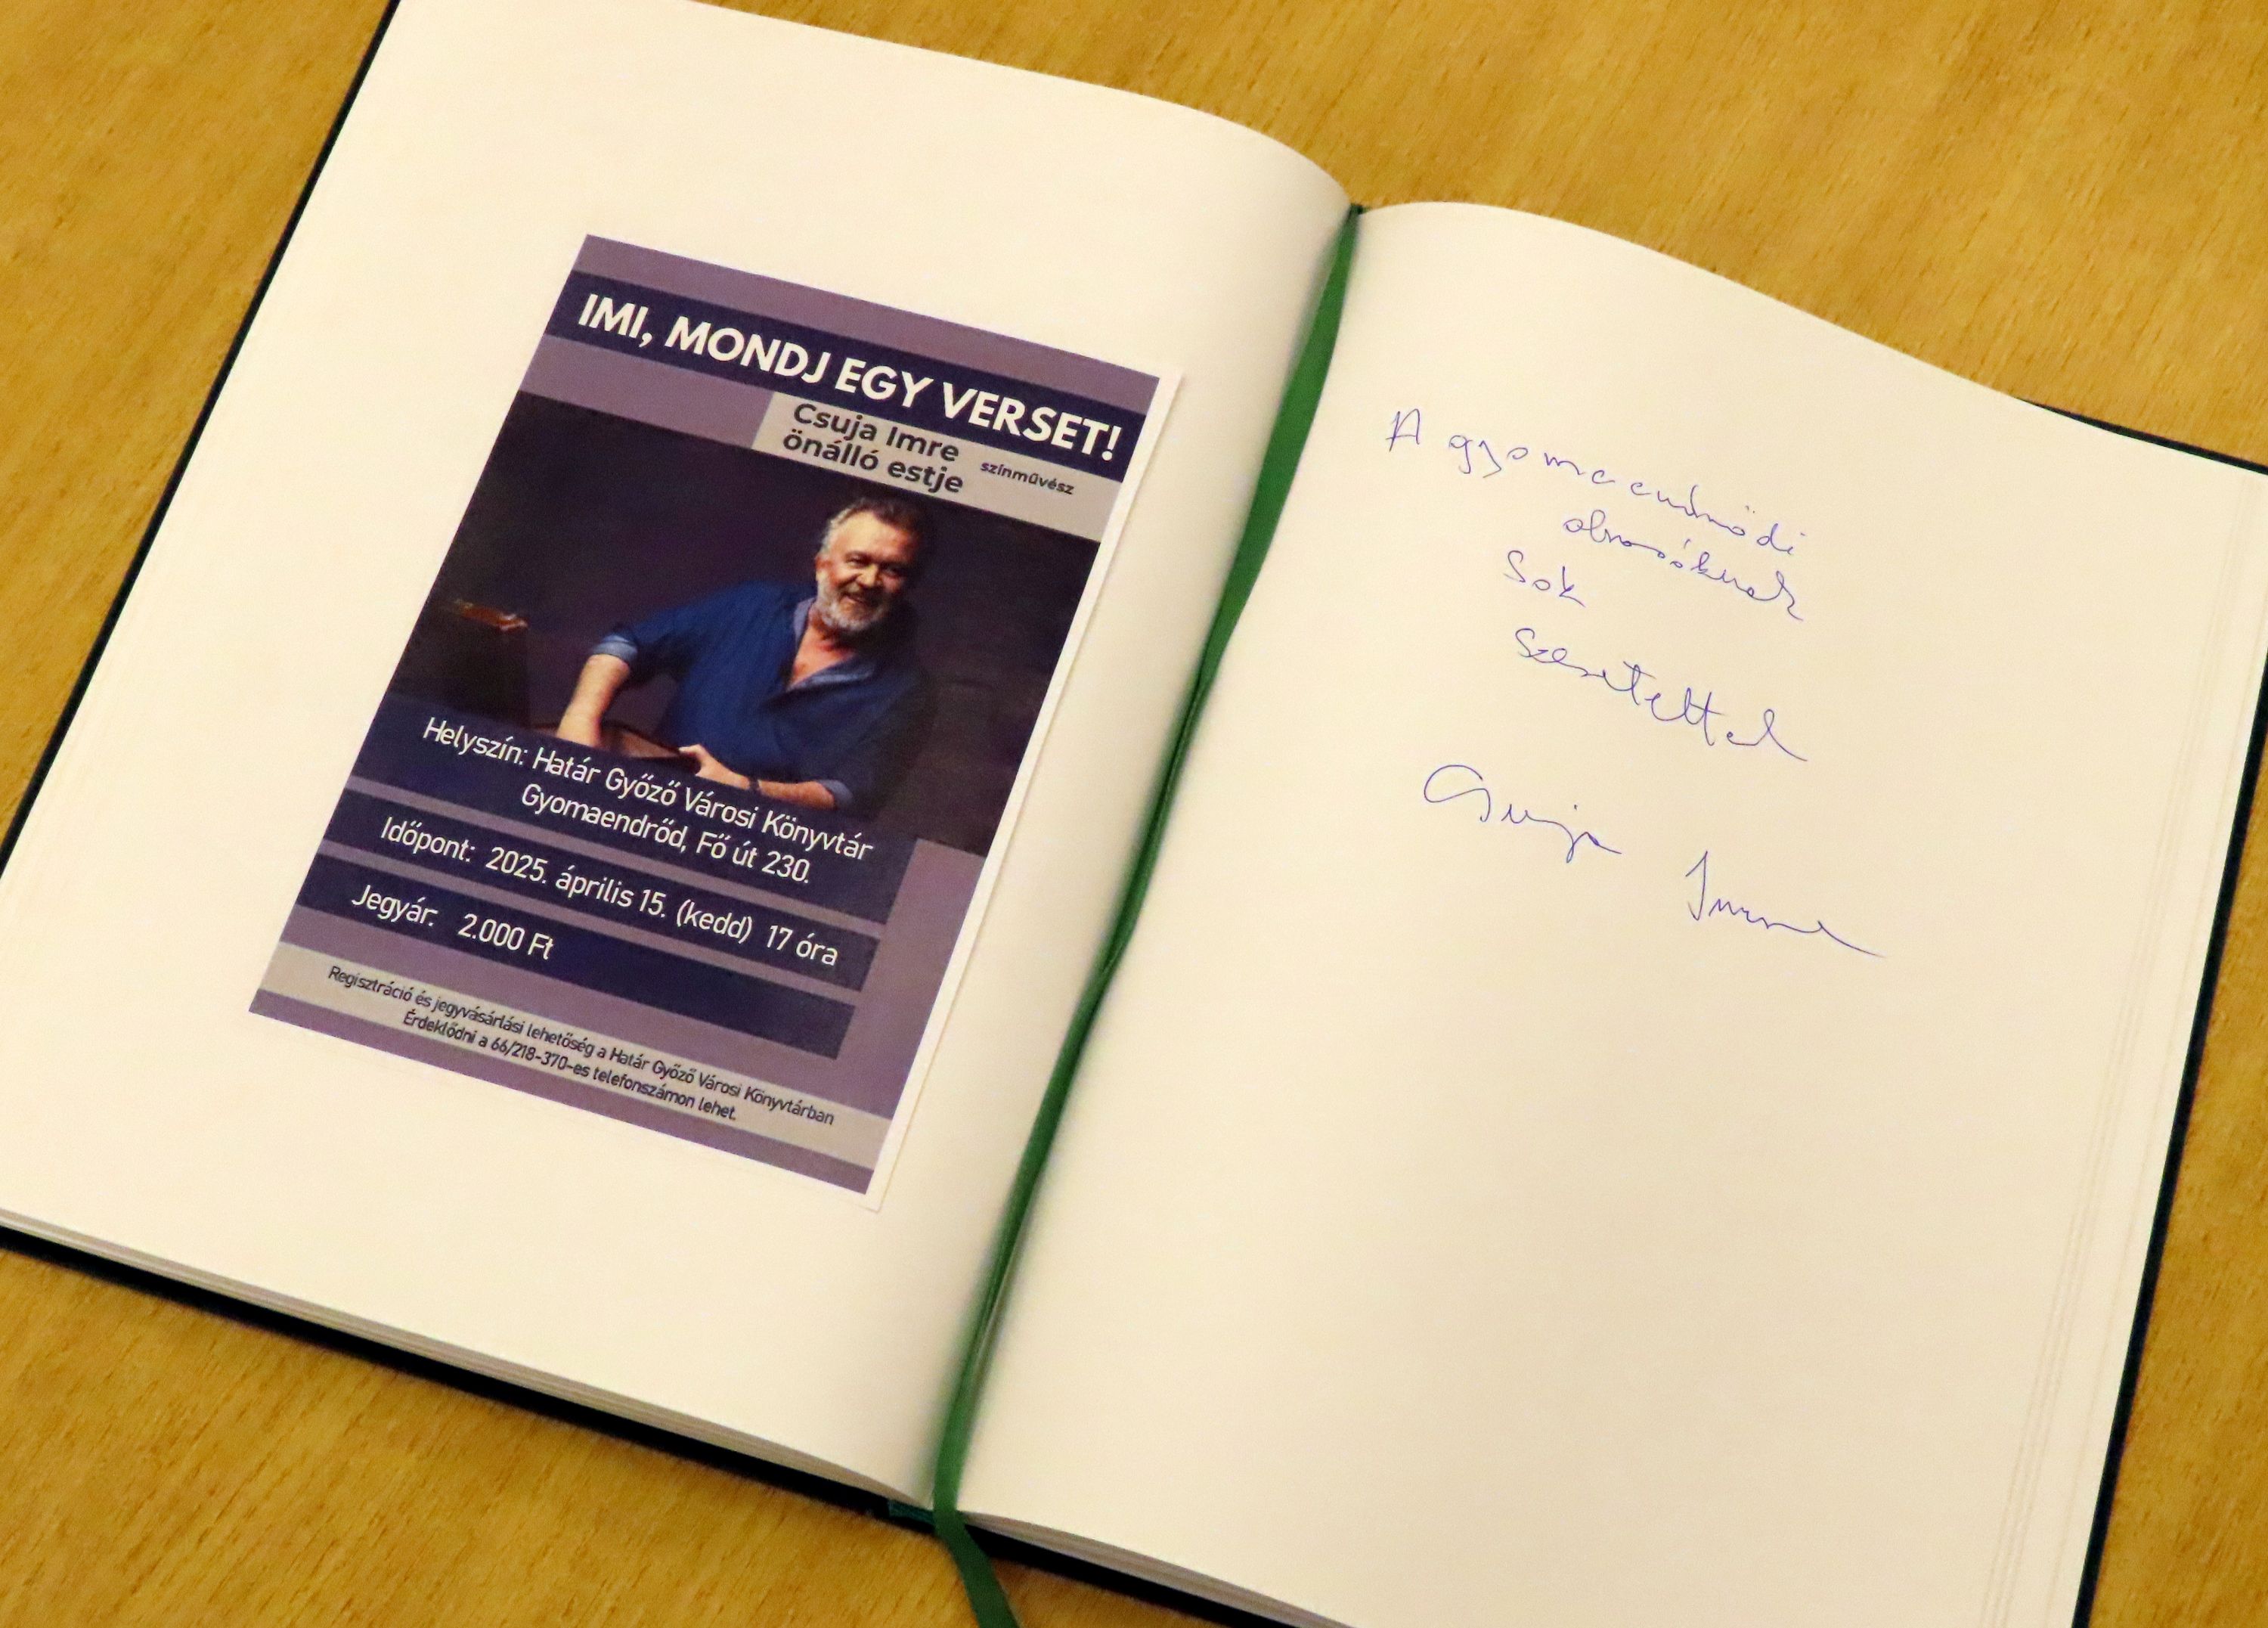 IMI, MONDJ EGY VERSET!
Csuja Imre
önálló estje
színművész
Helyszín: Határ Győző Városi Könyvtár
Gyomaendrőd, Fő út 230.
Időpont: 2025. április 15. (kedd) 17 óra
Jegyár: 2.000 Ft
Regisztráció és jegyvásárlási lehetőség a Határ Győző Városi Könyvtárban
Érdeklődni a 66/218-370-es telefonszámon lehet.
A gyomaendrődi
olvasóknak
Sok
Szeretettel
Csuja Imre